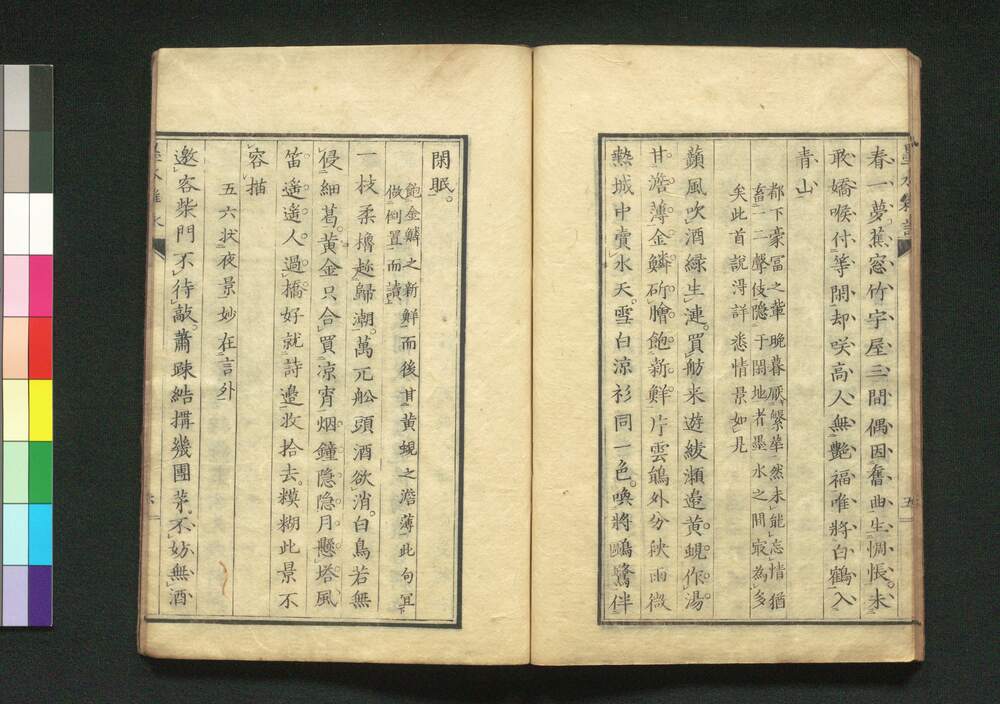 春一夢蕉窓竹字屋三間偶因奮曲生惆悵未
敢嬌喉付等閒却咲高人無艶福唯將白鶴入
青山
都下豪冨之輩晩暮厭繁華然未能忘情猶
畜一二聲伎隠于閑地者墨水之間㝡為多
矣此首説淂詳悉情景如見
蘋風吹酒緑生漣買舫来遊綾瀬邉黄蜆作湯
甘澹薄金鱗斫膾飽新鮮片雲鴟外分秧雨微
熱城中賣水天雪白涼衫同一色喚將鷗鷺伴
閑眠
飽金鱗之新鮮而後甘黄蜆之澹薄此句宜
倣倒置而讀
一枝柔櫓趁歸潮萬元舩頭酒欲消白鳥若無
侵細葛黄金只合買凉宵烟鐘隠隠月懸塔風
笛遙遙人過橋好就詩邉收拾去糢糊此景不
容描
五六状夜景妙在言外
邀客柴門不待敲蕭疎結搆幾團茅不妨無酒
五
六